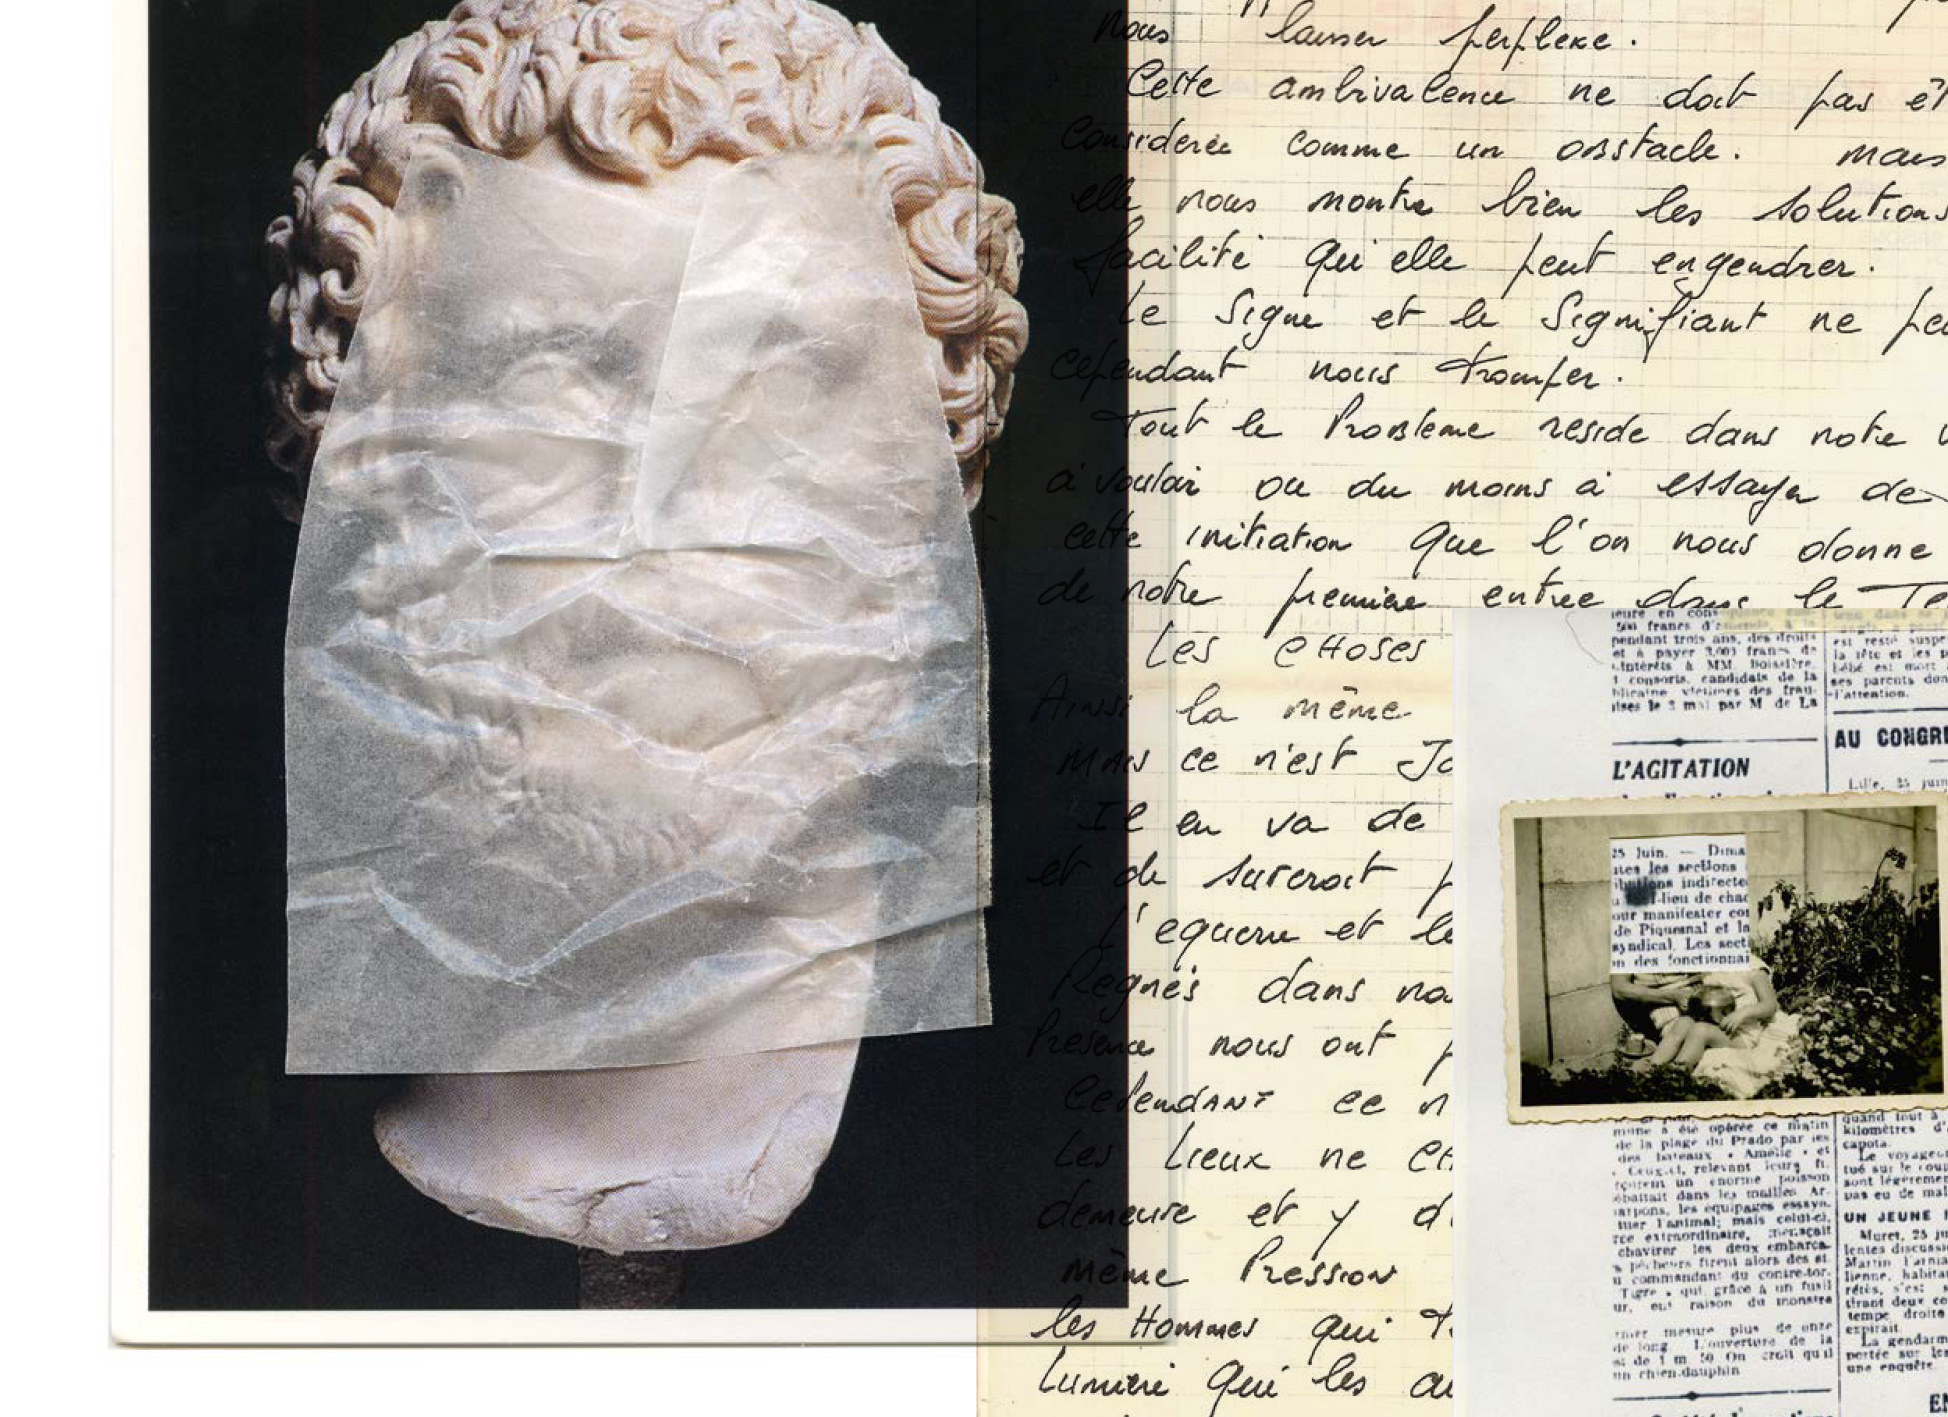 nous laisser perplexe.
Cette ambivalence ne doit pas êt
considerée comme un obstacle. mais
elle nous montre bien les solutions
facilité qu'elle peut engendrer.
Le Signe et le Signifiant ne peu
cependant nous tromper.
Tout le Problème reside dans notre v
à vouloir ou du moins à essayer de
cette initiation que l'on nous donne
de notre première entree dans le Te
Les CHoses
Ainsi la même
mais ce n'est Ja
Il en va de
et de surcroit p
L'equerre et le
Regnés dans no
Presence nous ont p
CependANT ce n
Les Lieux ne CH
demeure et y d
même Pression
les Hommes qui t
Lumière qui les au
500 francs d'
pendant trois ans, des droits
et à payer 3,000 francs de
-intérêts à MM. Boissière,
t consorts, candidats de la
blicaine victimes des frau-
ises le 3 mai par M de La
L'AGITATION
25 Juin. — Dima
utes les sections
ibutions indirecte
f-lieu de chac
our manifester con
de Piquemal et la
syndical. Les secti
on des fonctionnai
mune a été opérée ce matin
de la plage du Prado par les
des bateaux « Amélie » et
. Ceux-ci, relevant leurs fi-
rçurent un énorme poisson
ébattait dans les mailles Ar-
arpons, les équipages essayè-
tuer l'animal; mais celui-ci,
rce extraordinaire, menaçait
chavirer les deux embarca-
s pêcheurs firent alors des si-
u commandant du contre-tor-
Tigre » qui, grâce à un fusil
ur, eut raison du monstre
mesure plus de onze
de long L'ouverture de la
st de 1 m 50 On croit qu'il
un chien-dauphin
est resté suspe
la tête et les p
bébé est mort
ses parents don
l'attention.
AU CONGRÈ
Lille, 25 juin
quand tout à
kilomètres d'
capota.
Le voyageu
tué sur le coup
sont légèreme
pas eu de mal
UN JEUNE
Muret, 25 ju
lentes discussi
Martin
lienne, habita
rêtés, s'est
tirant deux co
tempe droite
expirait.
La gendarm
portée sur les
une enquête.
EN